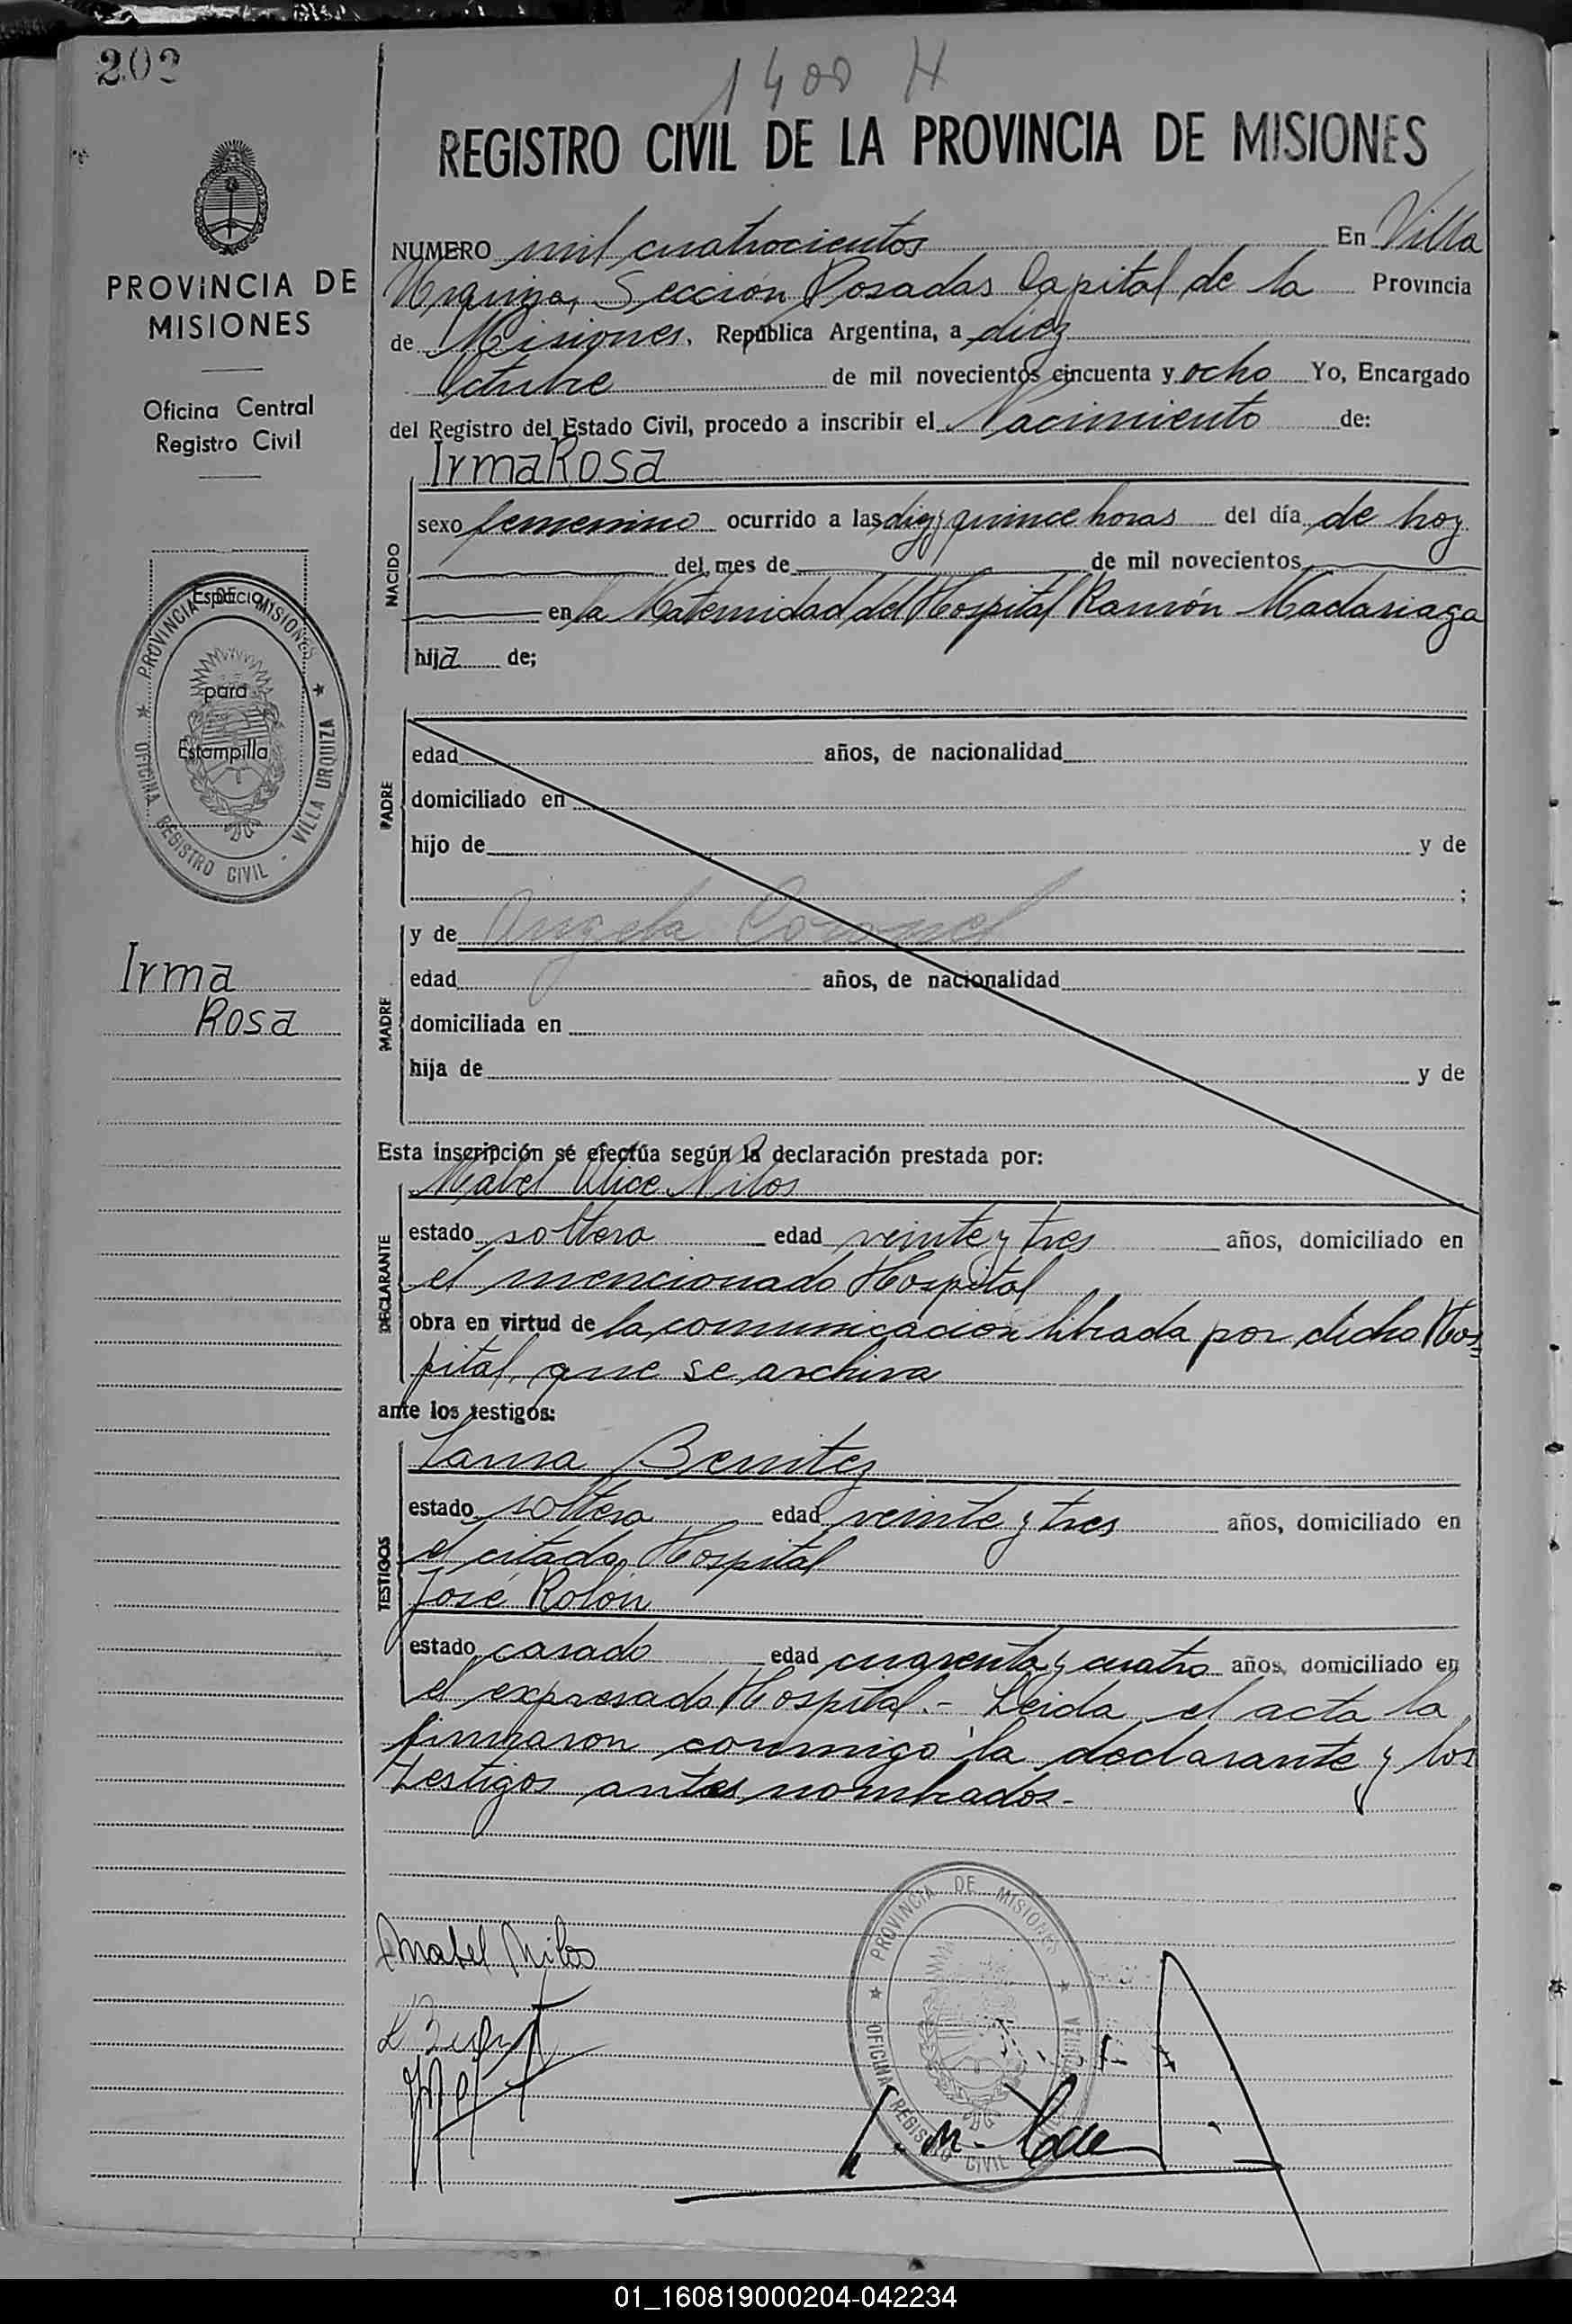 202
1400 H
REGISTRO CIVIL DE LA PROVINCIA DE MISIONES
PROVINCIA DE
MISIONES
Oficina Central
Registro Civil
Espacio
para
Estampilla
PROVINCIA DE MISIONES
OFICINA REGISTRO CIVIL - VILLA URQUIZA
Irma
Rosa
NUMERO mil cuatrocientos En Villa
Urquiza, Sección Posadas Capital de la Provincia
de Misiones. República Argentina, a diez
Octubre de mil novecientos cincuenta y ocho Yo, Encargado
del Registro del Estado Civil, procedo a inscribir el Nacimiento de:
NACIDO
Irma Rosa
sexo femenino ocurrido a las diez y quince horas del día de hoy
del mes de de mil novecientos
en la Maternidad del Hospital Ramón Madariaga
hija de;
PADRE
edad años, de nacionalidad
domiciliado en
hijo de y de
;
MADRE
y de Angela Coronel
edad años, de nacionalidad
domiciliada en
hija de y de
Esta inscripción se efectúa según la declaración prestada por:
DECLARANTE
Mabel Alice Nilos
estado soltera edad veinte y tres años, domiciliado en
el mencionado Hospital
obra en virtud de la comunicacion librada por dicho Hos=
pital, que se archiva
ante los testigos:
TESTIGOS
Laura Benitez
estado soltera edad veinte y tres años, domiciliado en
el citado Hospital
José Rolón
estado casado edad cuarenta y cuatro años, domiciliado en
el expresado Hospital.- Leida el acta la
firmaron conmigo la declarante y los
testigos antes nombrados.-
Mabel Nilos
PROVINCIA DE MISIONES
OFICINA REGISTRO CIVIL
01_160819000204-042234